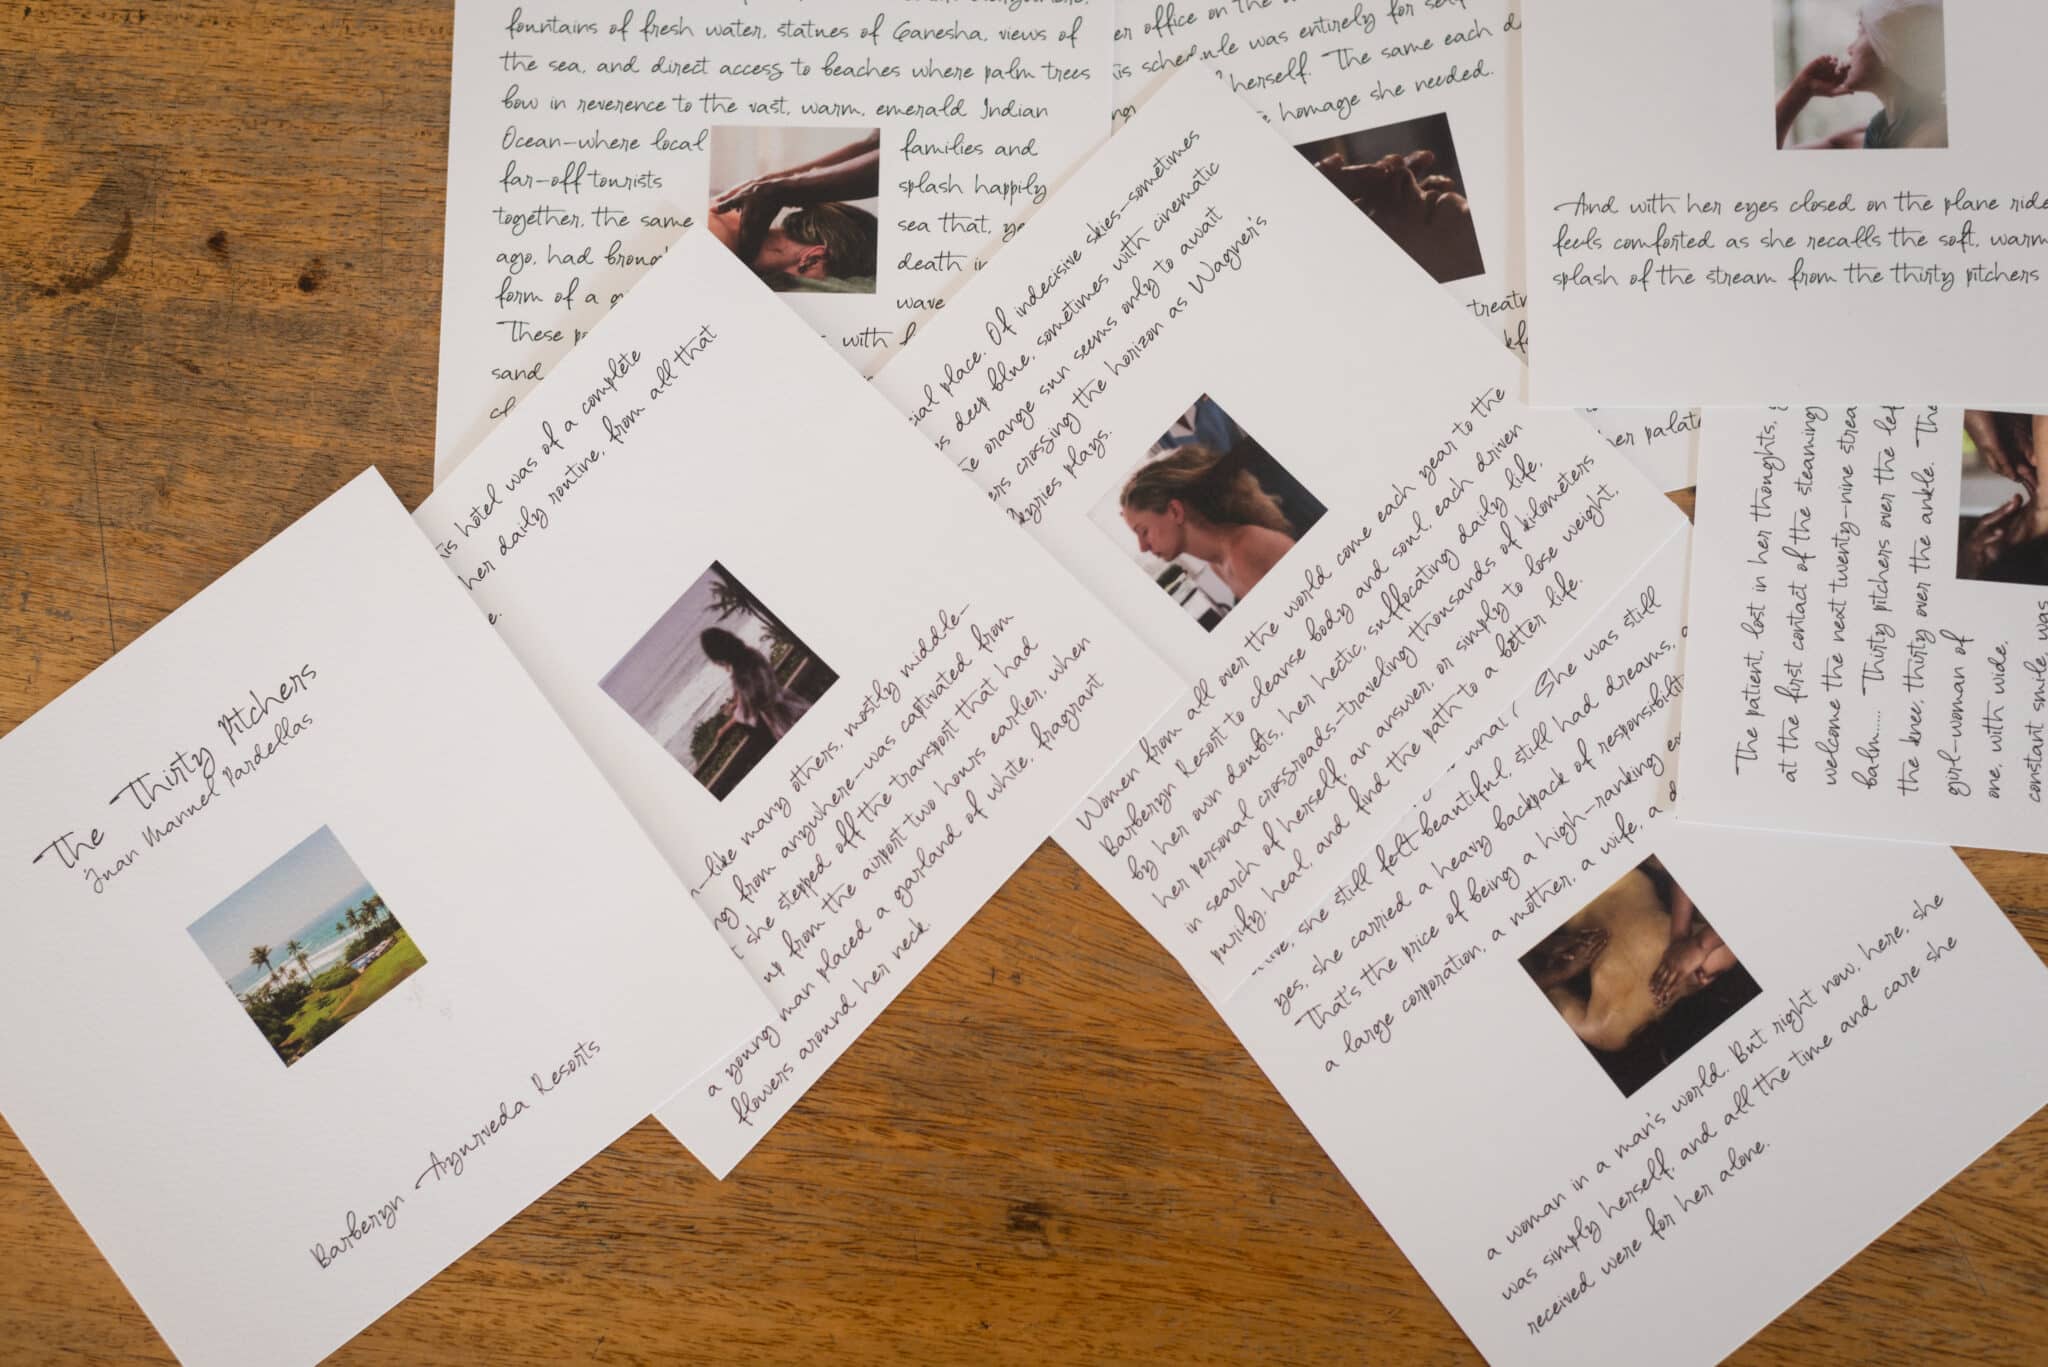 The Thirty Pitchers
Juan Manuel Pardellas
Barberyn Ayurveda Resorts
hotel was of a complete
her daily routine, from all that
like many others, mostly middle-
from anywhere—was captivated from
she stepped off the transport that had
up from the airport two hours earlier, when
a young man placed a garland of white, fragrant
flowers around her neck.
fountains of fresh water, statues of Ganesha, views of
the sea, and direct access to beaches where palm trees
bow in reverence to the vast, warm, emerald Indian
Ocean—where local families and
far-off tourists splash happily
together, the same sea that,
ago, had
form of a wave
death
These with
sand
place. Of indecisive skies—sometimes
deep blue, sometimes with cinematic
orange sun seems only to await
crossing the horizon as Wagner's
plays.
Women from all over the world come each year to the
Barberyn Resort to cleanse body and soul, each driven
by her own doubts, her hectic, suffocating daily life,
her personal crossroads—traveling thousands of kilometers
in search of herself, an answer, or simply to lose weight,
purify, heal, and find the path to a better life.
office on the
schedule was entirely for
herself. The same each
homage she needed.
She was still
she still felt beautiful, still had dreams,
yes, she carried a heavy backpack of
That's the price of being a high-ranking
a large corporation, a mother, a wife, a
a woman in a man's world. But right now, here, she
was simply herself, and all the time and care she
received were for her alone.
And with her eyes closed on the plane ride
feels comforted as she recalls the soft, warm
splash of the stream from the thirty pitchers
The patient, lost in her thoughts,
at the first contact of the steaming
welcome the next twenty-nine
balm..... Thirty pitchers over the
the knee, thirty over the ankle. The
girl-woman of
one, with wide,
constant smile, was